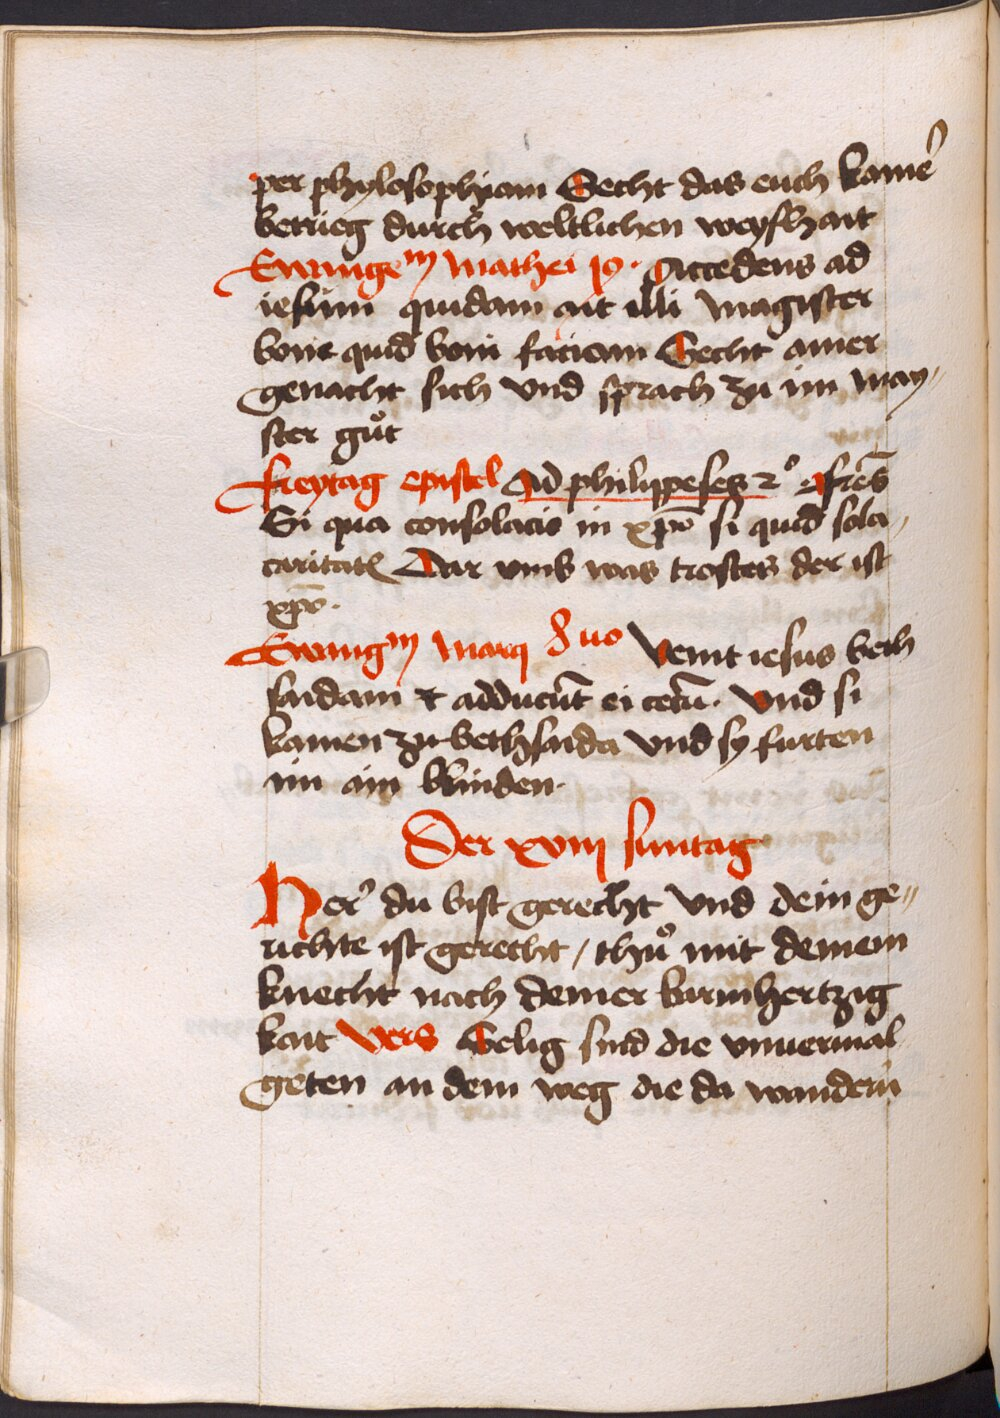 per phylosophiam Secht das euch kaineꝛ
betrieg durch weltlichen weyßhait
Ewangeᵐ Mathei 19. Accedens ad
iesum quidam ait illi magister
bone quid boni faciam Secht ainer
genacht sich vnd sprach zu im may⸗
ster guͦt
freytag epistel Ad philippeses 2° fres̄
Si qua consolacio in xp̄o si quid sola⸗
caritatꝭ Dar vmb was trostes der ist
xp̄o.
Ewangᵐ Marq 8uo Venit iesus beth
saidam & adducūt ei cecū. Vnd si
kamen zu bethsaida vnd sy furten
im ain blinden.
Der xviij suntag
Her̄ du bist gerecht vnd dein ge⸗
richte ist gerecht / thuͦ mit deinem
knecht nach deiner barmhertzig
kait Vers Selig sind die vnuermal
geten an dem weg die da wandern